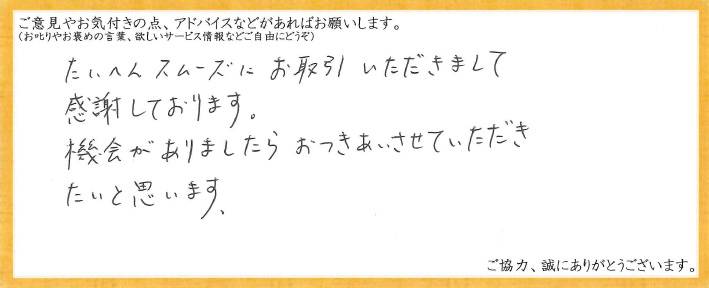 ご意見やお気付きの点、アドバイスなどがあればお願いします。
(お叱りやお褒めの言葉、欲しいサービス情報などご自由にどうぞ)
たいへんスムーズにお取引いただきまして
感謝しております。
機会がありましたらおつきあいさせていただき
たいと思います、
ご協力、誠にありがとうございます。